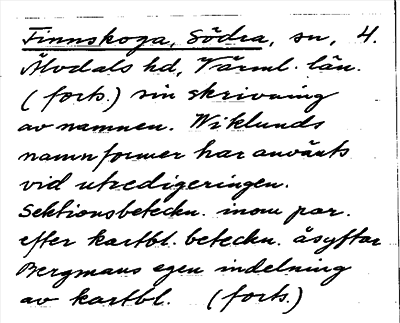 Finnskoga, Södra, sn, 4.
Älvdals hd, Värml. län.
(forts.) sin skrivning
av namnen. Wiklunds
namnformer har använts
vid utredigeringen.
Sektionsbeteckn. inom par.
efter kartbl. beteckn. åsyftar
Bergmans egen indelning
av kartbl. (forts.)